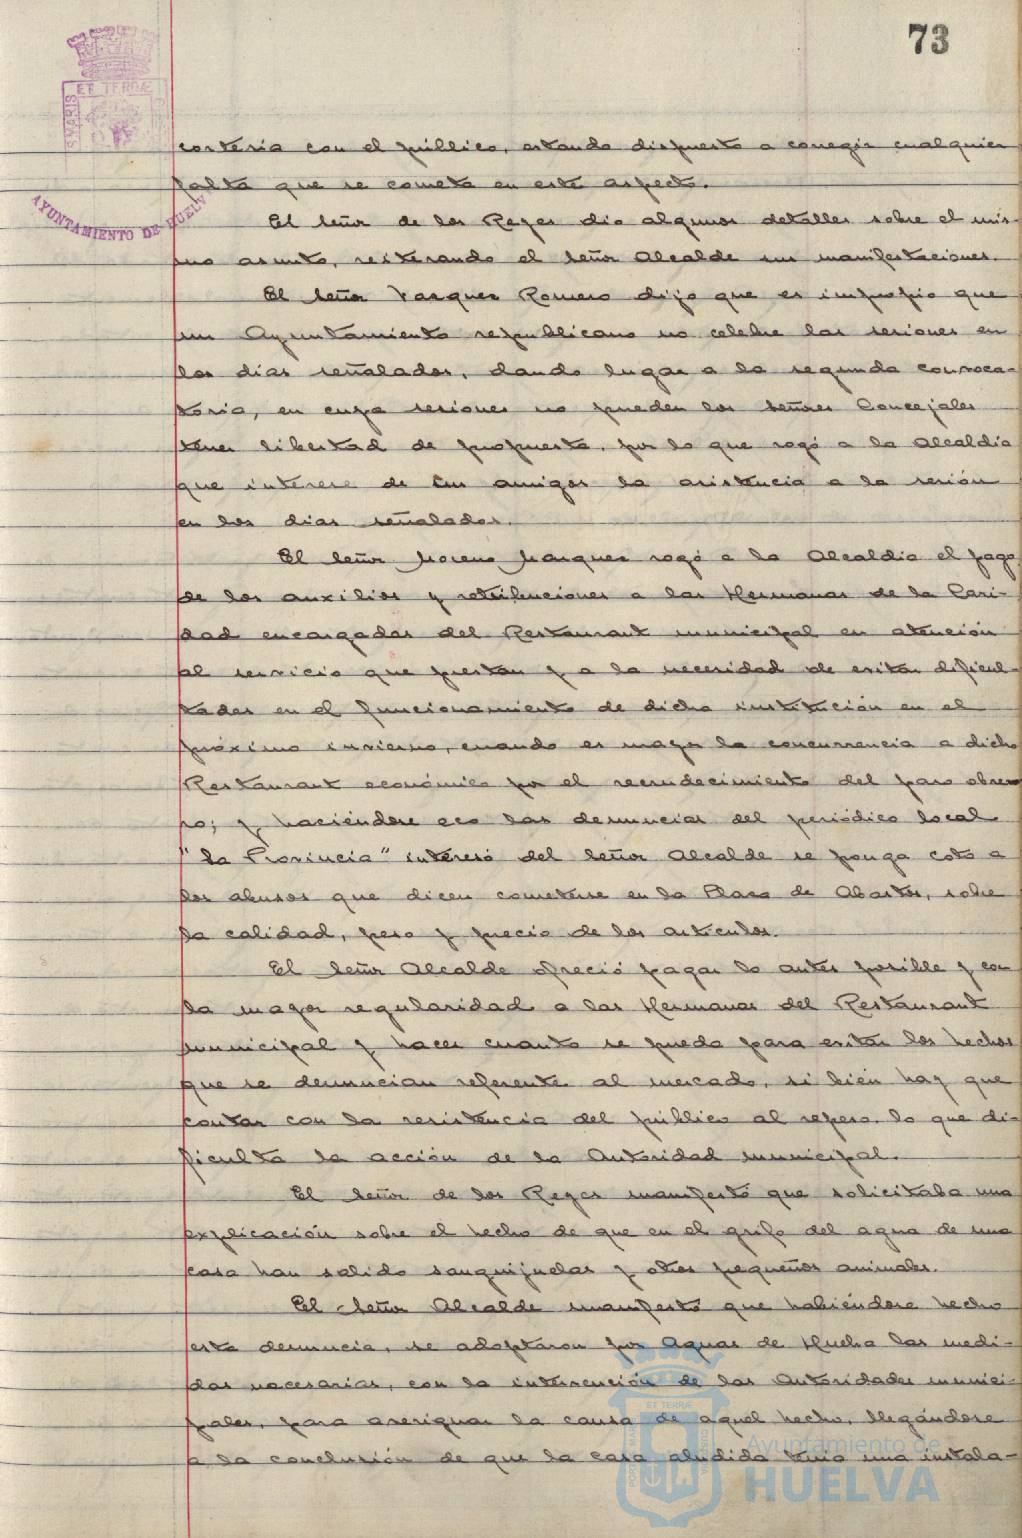 73
ET TERRÆ
S MARIS
AYUNTAMIENTO DE HUELVA
cortesía con el público, estando dispuesto a corregir cualquier
falta que se cometa en este aspecto.
El Señor de los Reyes dio algunos detalles sobre el mis-
mo asunto, reiterando el Señor Alcalde sus manifestaciones.
El Señor Vazquez Romero dijo que es impropio que
un Ayuntamiento republicano no celebre las sesiones en
los dias señalados, dando lugar a la segunda convoca-
toria, en cuyas sesiones no pueden los Señores Concejales
tener libertad de propuesta, por lo que rogó a la Alcaldía
que interese de sus amigos la asistencia a la sesión
en los dias señalados.
El Señor Moreno Marquez rogó a la Alcaldía el pago
de los auxilios y retribuciones a las Hermanas de la Cari-
dad encargadas del Restaurant municipal en atención
al servicio que prestan y a la necesidad de evitar dificul-
tades en el funcionamiento de dicha institución en el
próximo invierno, cuando es mayor la concurrencia a dicho
Restaurant económico por el recrudecimiento del paro obre-
ro; y haciéndose eco las denuncias del periódico local
"La Provincia" interesó del Señor Alcalde se ponga coto a
los abusos que dicen cometerse en la Plaza de Abastos, sobre
la calidad, peso y precio de los artículos.
El Señor Alcalde ofreció pagar lo antes posible y con
la mayor regularidad a las Hermanas del Restaurant
municipal y hacer cuanto se pueda para evitar los hechos
que se denuncian referente al mercado, si bién hay que
contar con la resistencia del público al repeso, lo que di-
ficulta la acción de la Autoridad municipal.
El Señor de los Reyes manifestó que solicitaba una
explicación sobre el hecho de que en el grifo del agua de una
casa han salido sanguijuelas y otros pequeños animales.
El Señor Alcalde manifestó que habiéndose hecho
esta denuncia, se adoptaron por Aguas de Huelva las medi-
das necesarias, con la intervención de las Autoridades munici-
pales, para averiguar la causa de aquel hecho, llegándose
a la conclusión de que la casa aludida tenía una instala-
Ayuntamiento de
HUELVA